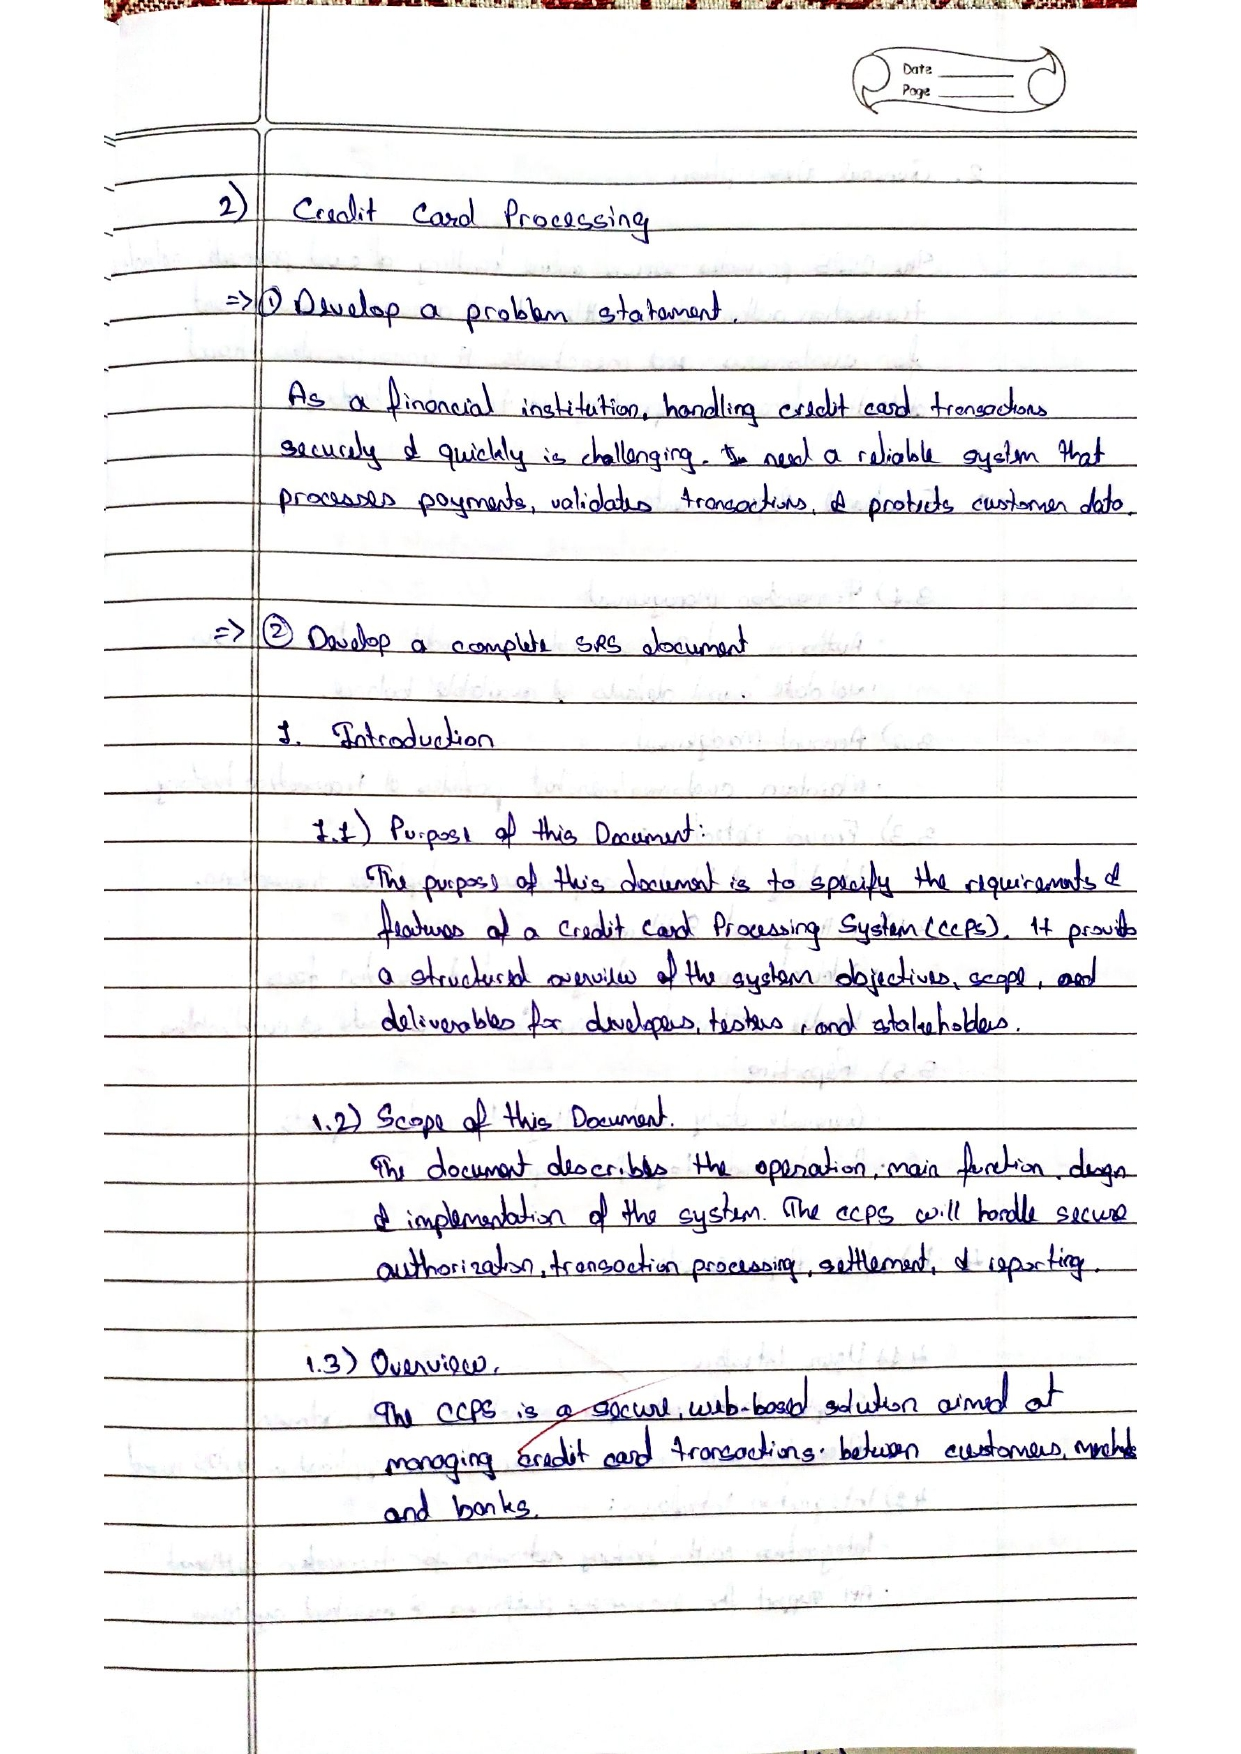 Date
Page
2) Credit Card Processing
=> ① Develop a problem statement.
As a financial institution, handling credit card transactions
securely & quickly is challenging. I need a reliable system that
processes payments, validates transactions, & protects customer data.
=> ② Develop a complete SRS document
1. Introduction
1.1) Purpose of this Document:
The purpose of this document is to specify the requirements &
features of a Credit Card Processing System (CCPS). It provides
a structured overview of the system objectives, scope, and
deliverables for developers, testers, and stakeholders.
1.2) Scope of this Document.
The document describes the operation, main function, design
& implementation of the system. The CCPS will handle secure
authorization, transaction processing, settlement, & reporting.
1.3) Overview.
The CCPS is a secure, web-based solution aimed at
managing credit card transactions between customers,
and banks.